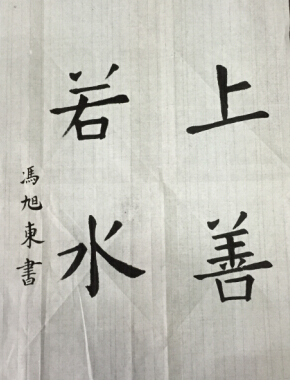 上善
若水
馮旭東書